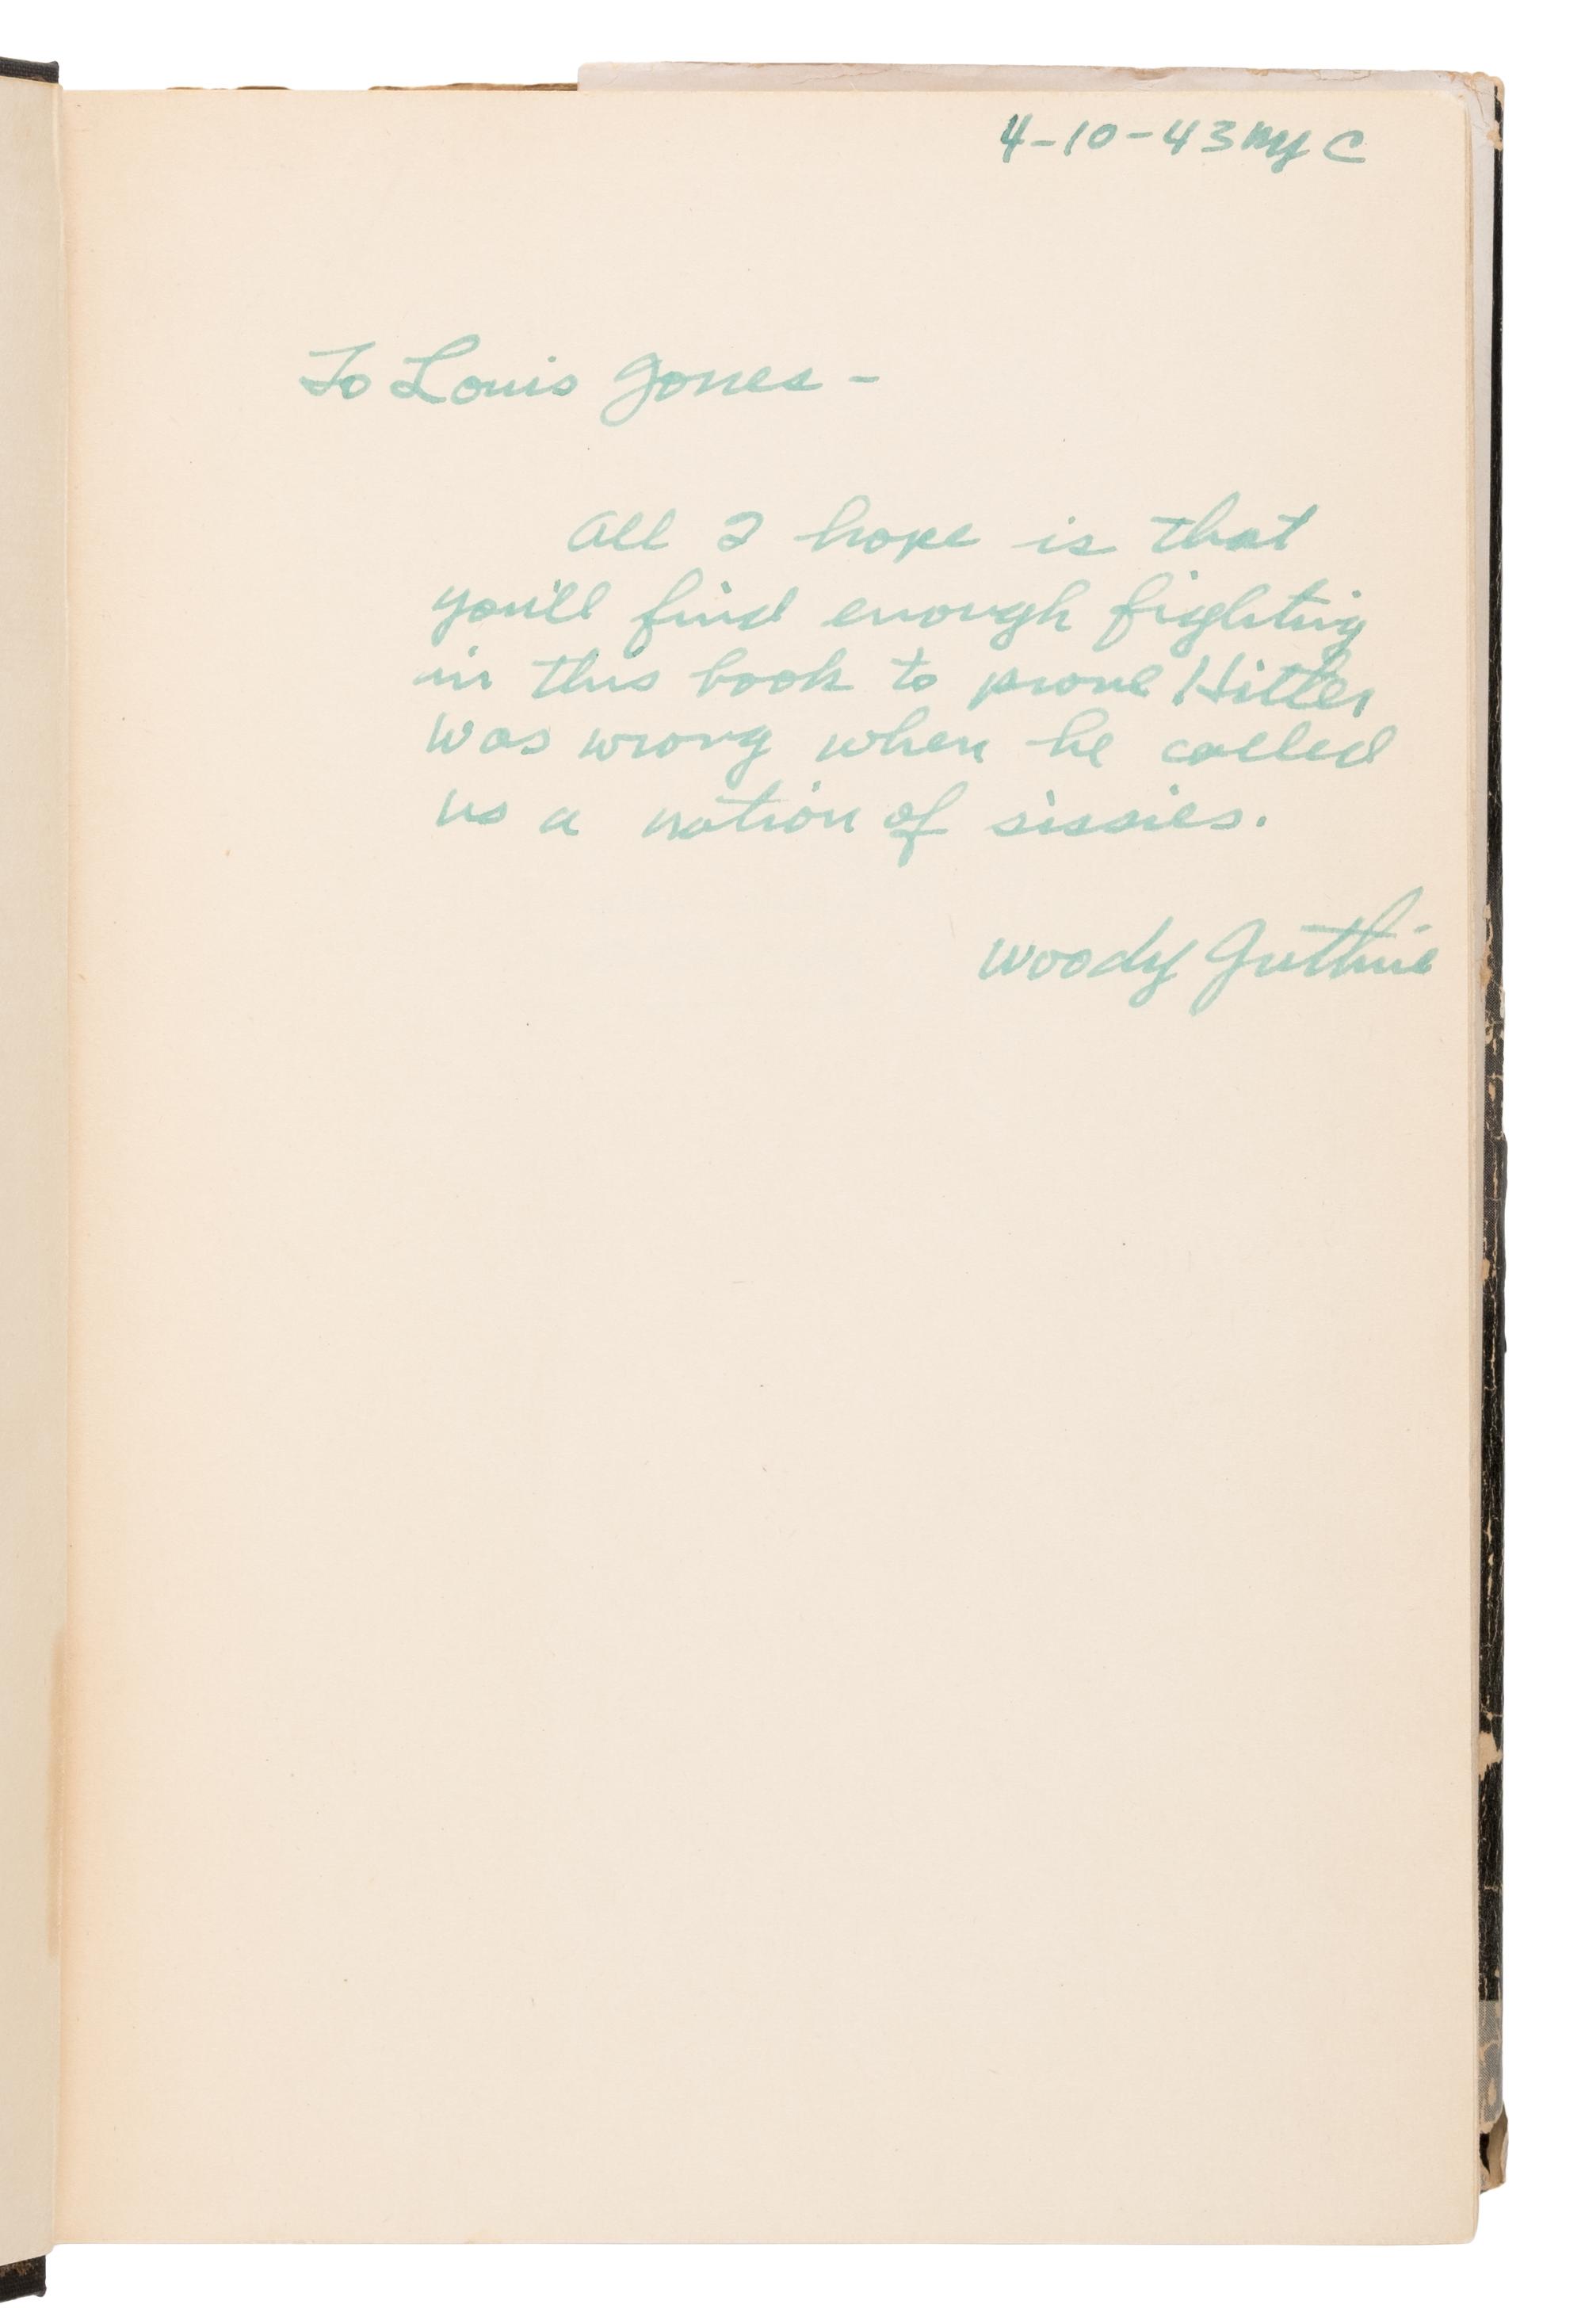 4-10-43 NY C
To Louis Jones -
All I hope is that
you'll find enough fighting
in this book to prove Hitler
was wrong when he called
us a nation of sissies.
Woody Guthrie